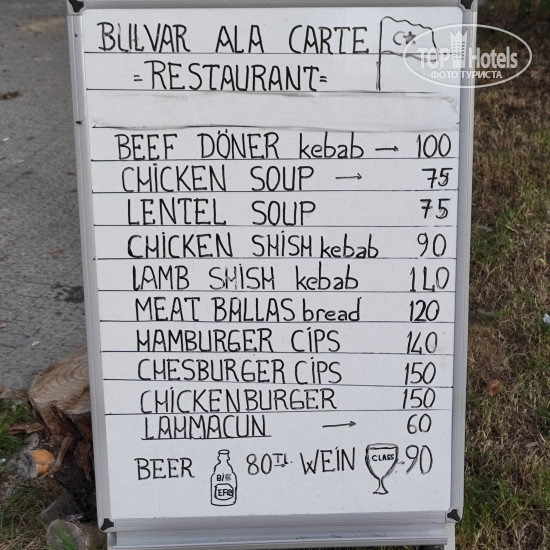 BULVAR ALA CARTE
=RESTAURANT=
TOPHotels
ФОТО ТУРИСТА
BEEF DÖNER kebab → 100
CHİCKEN SOUP → 75
LENTEL SOUP 75
CHİCKEN SHİSH kebab 90
LAMB SHİSH kebab 110
MEAT BALLAS bread 120
HAMBURGER CİPS 140
CHESBURGER CİPS 150
CHİCKENBURGER 150
LAHMACUN → 60
BEER EFES 80TL WEİN CLASS 90